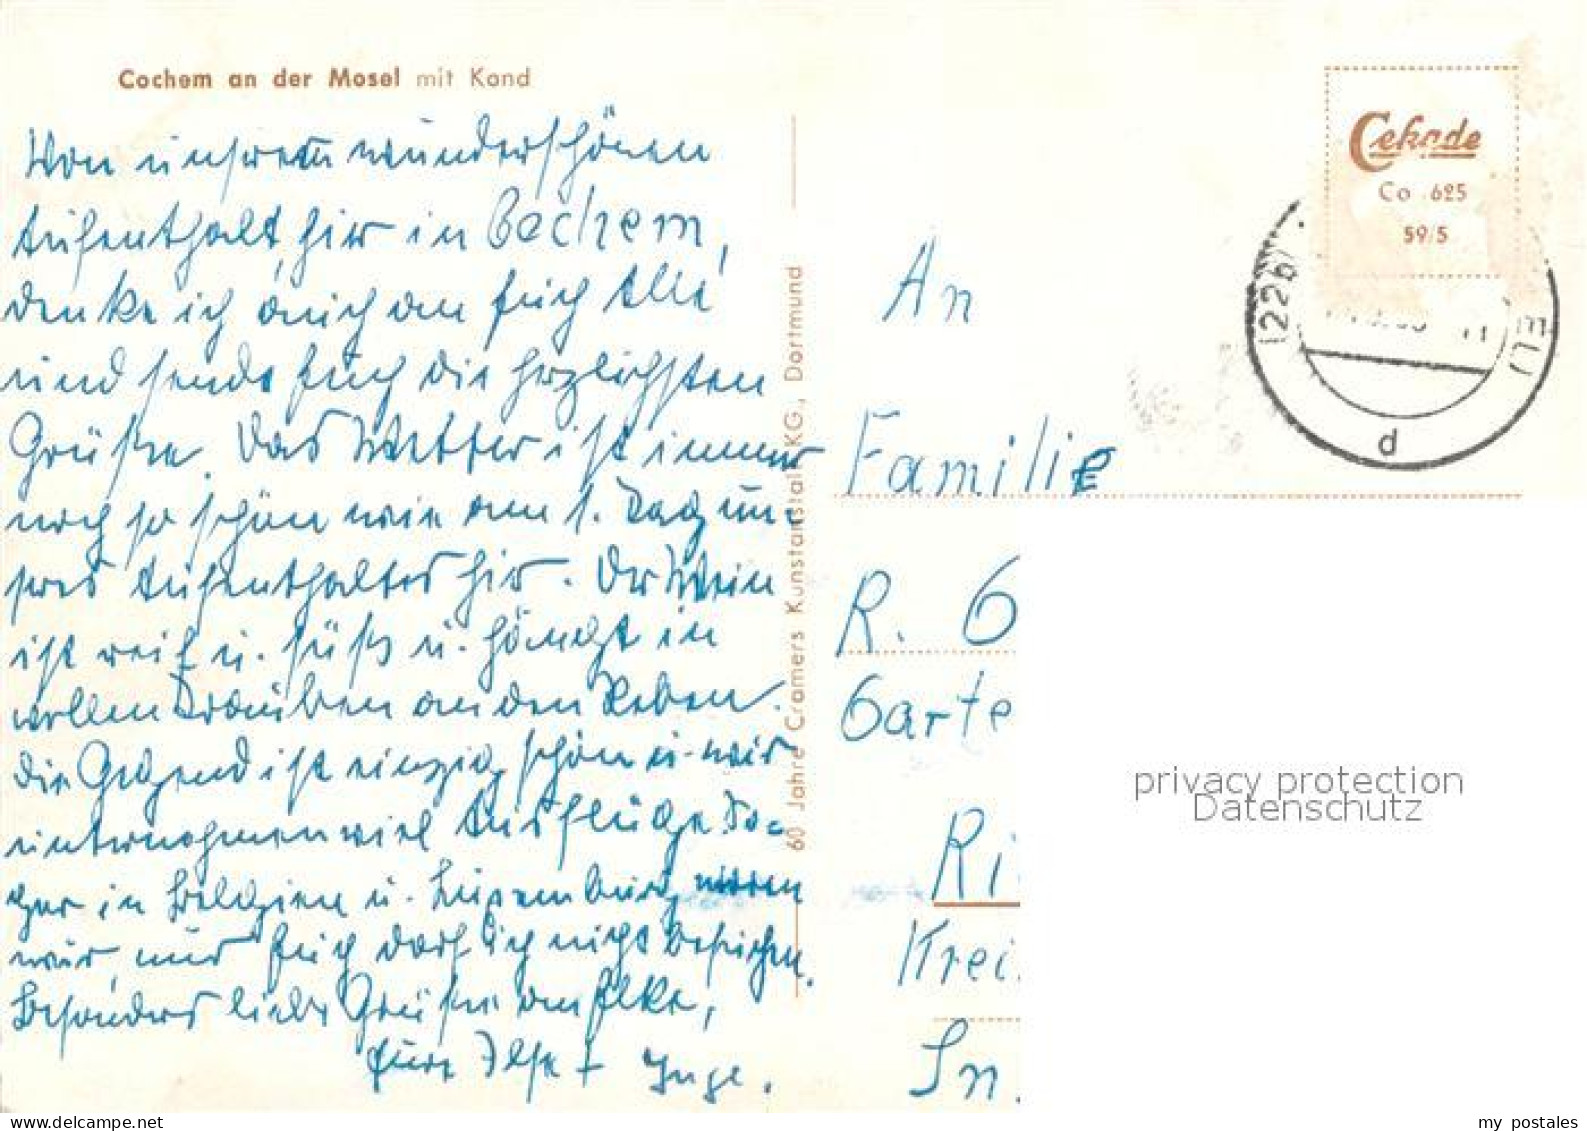 Cochem an der Mosel mit Kond
Von unsrem wunderschönen
Aufenthalt hir in Cochem,
denke ich auch an Euch Alle
und sende Euch die herzlichsten
Grüße. Das Wetter ist immer
noch so schön wie am 1. Tag un-
sres Aufenthaltes hir. Der Wein
ist reif u. süß u. hängt in
vollen Trauben an den Reben.
Die Gegend ist einzig schön u. wir
unternehmen viel Ausflüge. So-
gar in Belgien u. Luxemburg waren
wir, nur Euch darf ich nicht besuchen.
Besonders liebe Grüße an Elke,
Eure Ilse + Inge.
60 Jahre Cramers Kunstanstalt KG., Dortmund
Cekade
Co 625
59/5
(22b)
d
An
Familie
R. G
Garte
Ri
Krei
In
privacy protection
Datenschutz
my postales